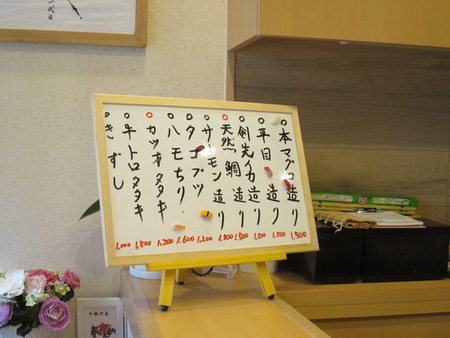 一代目
○本マグロ造り
○平目造り 1,500
○剣先イカ造り 1,500
○天然鯛造り 1,500
○サーモン造り 1,500
○タコブツ 1,200
○ハモちり 1,600
○カツオタタキ 1,200
○牛トロタタキ 1,800
○きずし 1,000